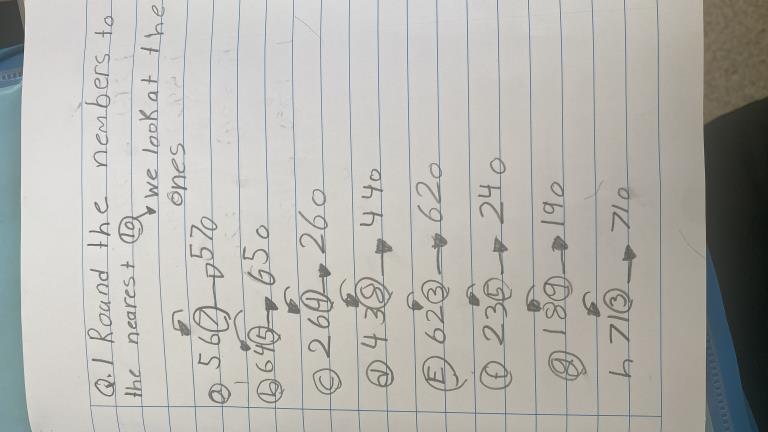 Q.1 Round the nembers to
the nearest 10 we look at the
ones
a 567 → 570
b 645 → 650
c 264 → 260
d 438 → 440
E 623 → 620
f 235 → 240
g 189 → 190
h 713 → 710